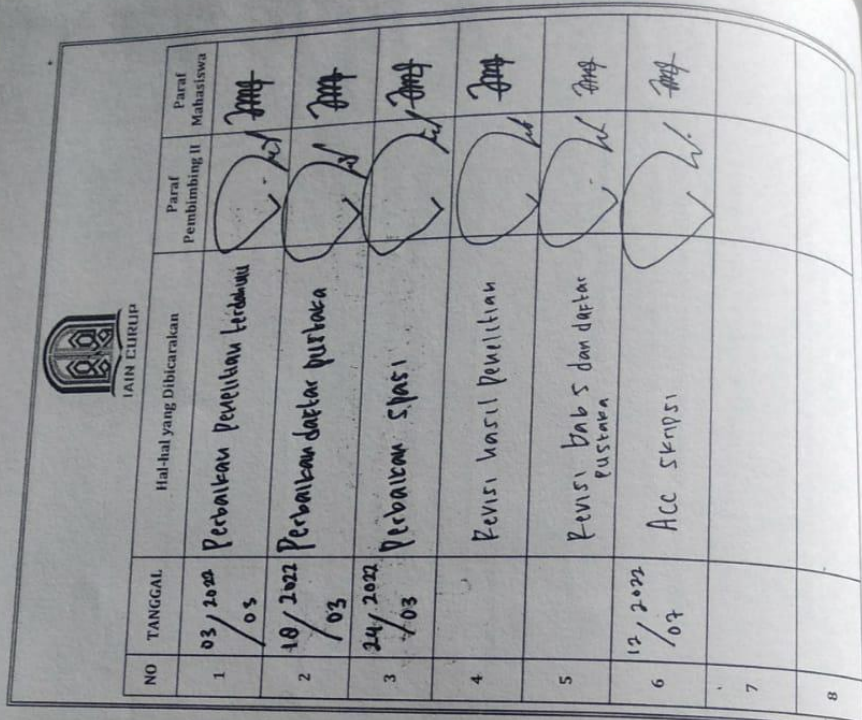 IAIN CURUP
NO TANGGAL Hal-hal yang Dibicarakan Paraf Pembimbing II Paraf Mahasiswa
1 03/2022 /03 Perbaikan penelitian terdahulu
2 18/2022 /03 Perbaikan daftar pustaka
3 24/2022 /03 Perbaikan spasi
4 Revisi hasil penelitian
5 Revisi bab 5 dan daftar
pustaka
6 12/2022 /07 Acc skripsi
7
8